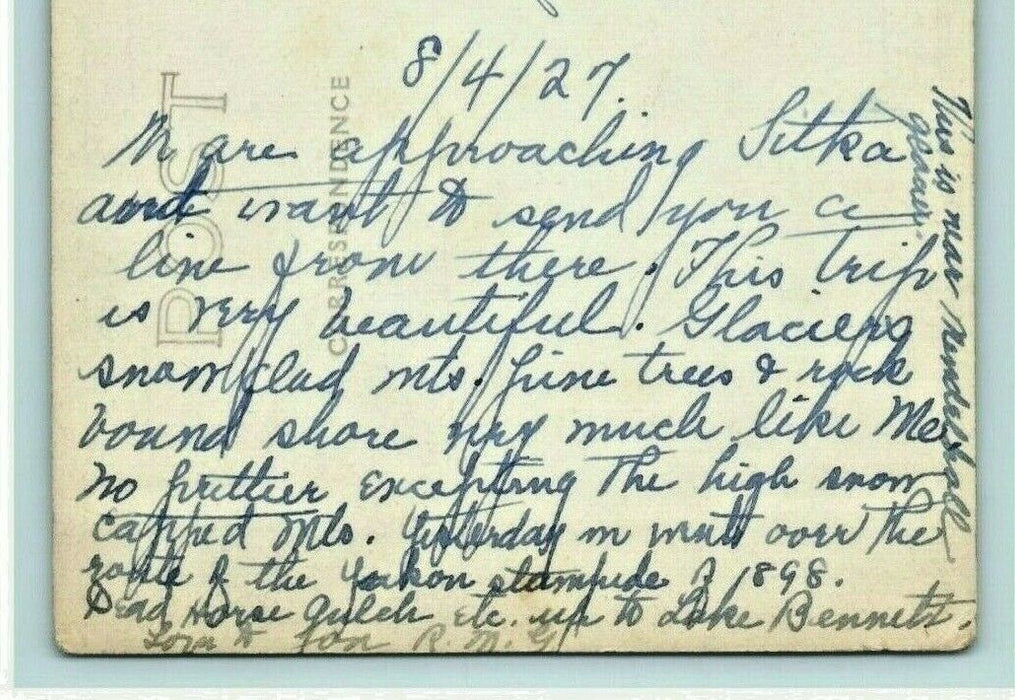 8/4/27.
We are approaching Sitka
and want to send you a
line from there. This trip
is very beautiful. Glaciers
snow clad mts. pine trees & rock
bound shore very much like Me.
no prettier excepting the high snow
capped Mts. Yesterday we went over the
route of the Yukon stampede of 1898.
Dead Horse Gulch etc. up to Lake Bennett.
Love to R. M. G.
This is near Mendenhall
glacier.
POST
CORRESPONDENCE